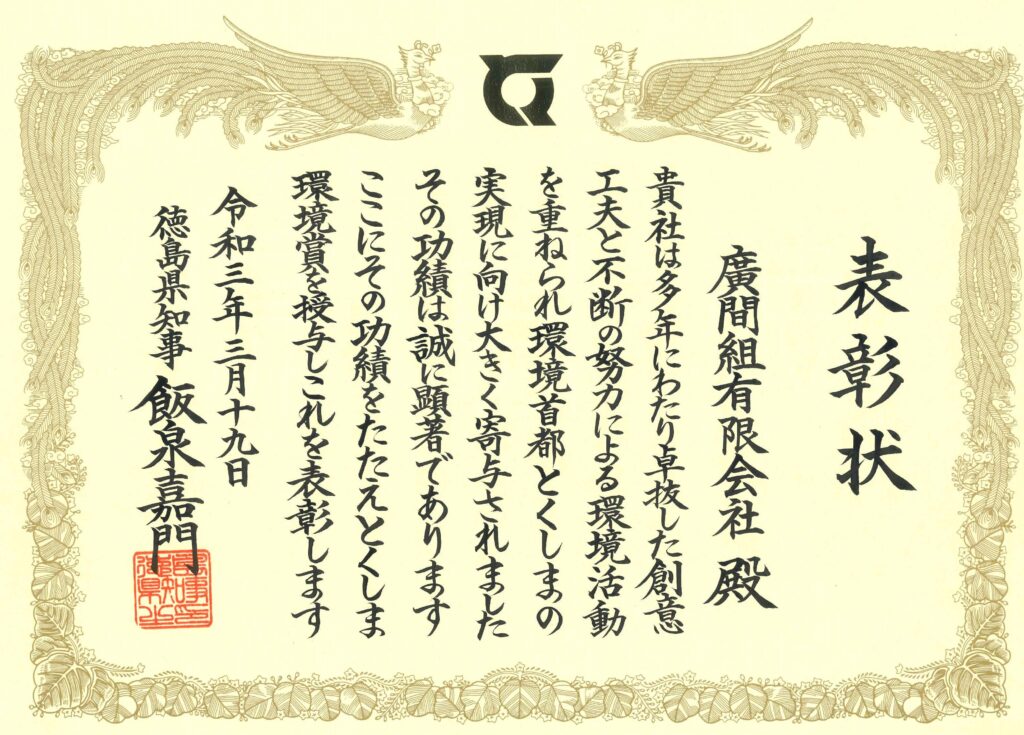 表彰状
廣間組有限会社 殿
貴社は多年にわたり卓抜した創意
工夫と不断の努力による環境活動
を重ねられ環境首都とくしまの
実現に向け大きく寄与されました
その功績は誠に顕著であります
ここにその功績をたたえとくしま
環境賞を授与しこれを表彰します
令和三年三月十九日
徳島県知事 飯泉嘉門